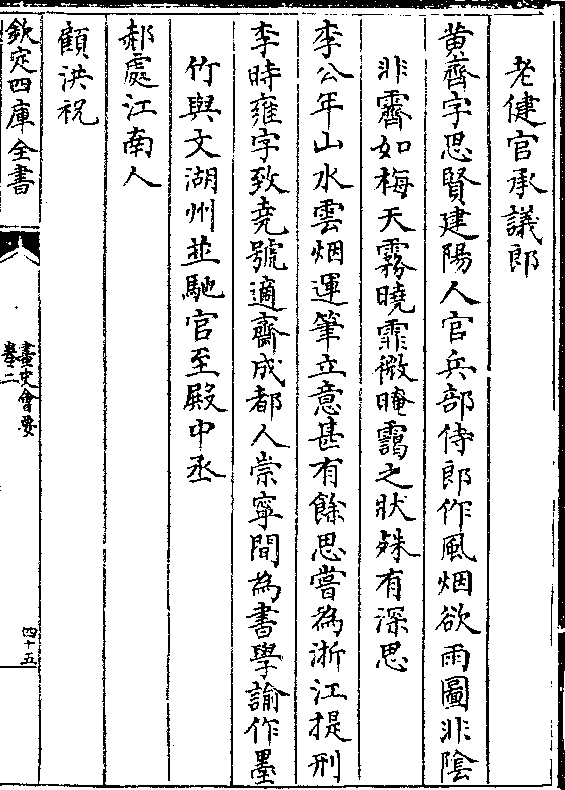 老健官承議郎
黄齊字思賢建陽人官兵部侍郎作風烟欲雨圖非陰
非霽如梅天霧曉霏微晻靄之狀殊有深思
李公年山水雲烟運筆立意甚有餘思嘗為浙江提刑
李時雍字致堯號適齋成都人崇寧間為書學諭作墨
竹與文湖州並馳官至殿中丞
郝處江南人
顧洪祝
欽定四庫全書
畫史會要
卷二
四十五